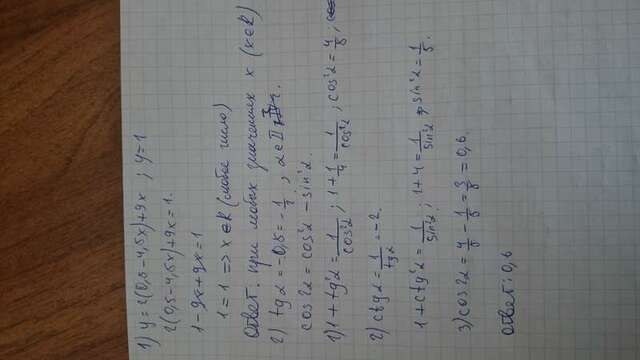 1) y = 2(0,5 - 4,5x) + 9x ; y = 1
2(0,5 - 4,5x) + 9x = 1.
1 - 9x + 9x = 1
1 = 1 => x ∈ R (любое число)
Ответ. при любых значениях x (x ∈ R)
2) tg α = -0,5 = -1/2 , α ∈ II ч.
cos 2α = cos²α - sin²α.
1) 1 + tg²α = 1/cos²α ; 1 + 1/4 = 1/cos²α ; cos²α = 4/5 ;
2) ctg α = 1/tg α = -2.
1 + ctg²α = 1/sin²α ; 1 + 4 = 1/sin²α => sin²α = 1/5.
3) cos 2α = 4/5 - 1/5 = 3/5 = 0,6.
Ответ: 0,6